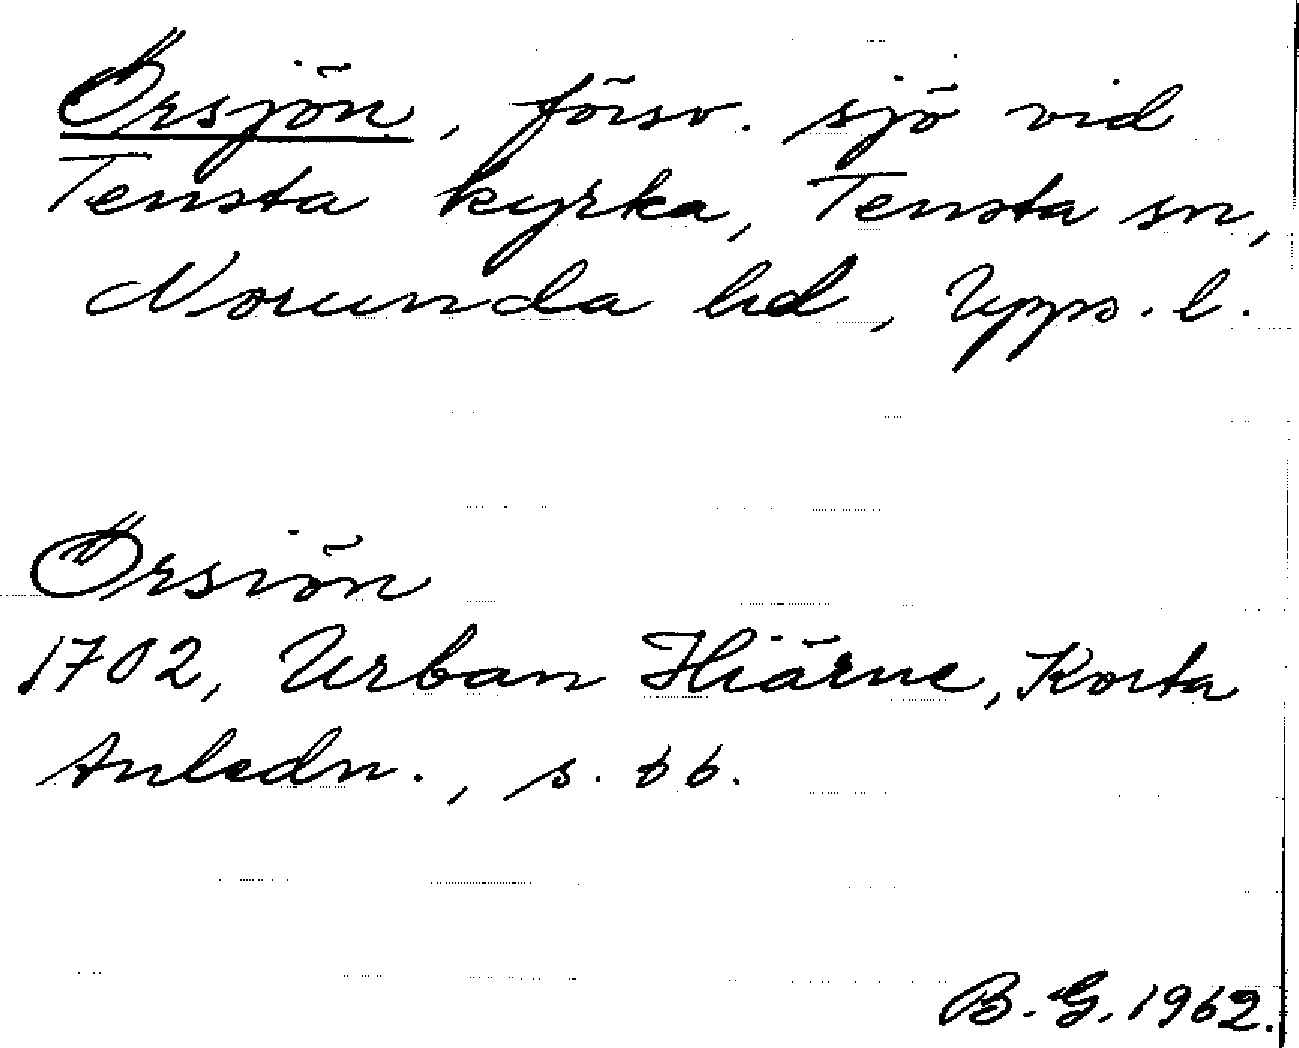 Örsjön, försv. sjö vid
Tensta kyrka, Tensta sn,
Norunda hd, Upps. l.
Örsiön
1702, Urban Hiärne, Korta
Anledn., s. 66.
B. G. 1962.